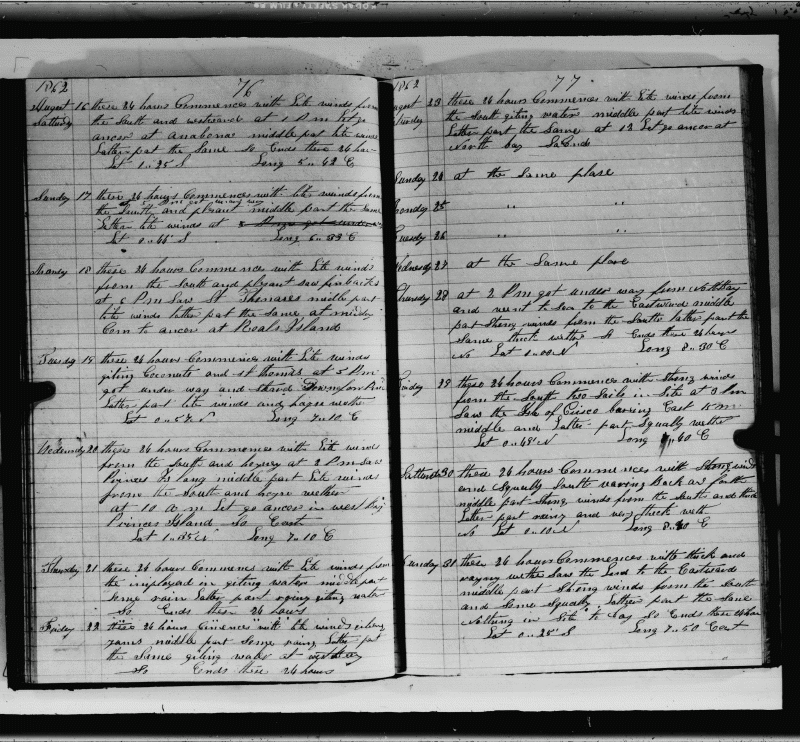 1862
76
August 16 these 24 hours Commences with Lite winds from
Satturday the South and westward at 1 P M let go
ancor at Anabona middle part lite winds
Latter part the Same So Ends these 24 hours
Lat 1..25 S Long 5..42 E
Sunday 17 these 24 hours Commences with lite winds from
the South and plesant middle part the Same
Latter lite winds at
Lat 0..46 S Long 6..33 E
Manday 18 these 24 hours Commences with Lite winds
from the South and plesant saw finbacks
at 6 P M Saw St Thomases middle part
lite winds latter part the Same at midday
Com to ancor at Roals Island
Tuesday 19 these 24 hours Commences with Lite winds
giting Coconuts and at 5 P M
got under way and
Latter part lite winds and
Lat 0..57 N Long 7..10 E
Wedensdy 20 these 24 hours Commences with Lite winds
from the South and at 2 P M saw
Princes Island middle part Lite winds
from the South and wether
at 10 a m let go ancor in west bay
Princes Island So East
Lat 1..35 N Long 7..10 E
Thursday 21 these 24 hours Commences with Lite winds from
the imployed in giting water middle part
Some rain latter part giting water
So Ends these 24 hours
Friday 22 these 24 hours with lite winds giting
yams middle part Some rain Latter part
the Same giting water at west bay
So Ends these 24 hours
1862
77
August 23 these 24 hours Commences with Lite winds from
the South giting water middle part lite winds
Latter part the Same at 12 Let go ancor at
North bay So Ends
Sunday 24 at the Same plase
Monday 25 " "
Tuesday 26 " "
Wednesdy 27 at the Same plase
Thursday 28 at 2 P M got under way from North bay
and went to Sea to the Eastward middle
part Strong winds from the South latter part the
Same thick wether So Ends these 24 hours
No Lat 1..00 N Long 8..30 E
Friday 29 these 24 hours Commences with Strong winds
from the South two Sails in Site at 3 P M
Saw the Isle of Cisco baring East 15 m
middle and Latter part Squally wether
Lat 0..48 N Long 40 E
Satterdy 30 these 24 hours Commences with Strong winds
and Squally South
middle part Strong winds from the South and thick
Latter part rainy and very thick wether
No Lat 0..10 N Long 8..40 E
Sunday 31 these 24 hours Commences with thick and
rayny wether Saw the Land to the Eastward
middle part Strong winds from the South
and Some Squally Latter part the Same
Nothing in Site to day So Ends these 24 hours
Lat 0..28 S Long 7..50 East